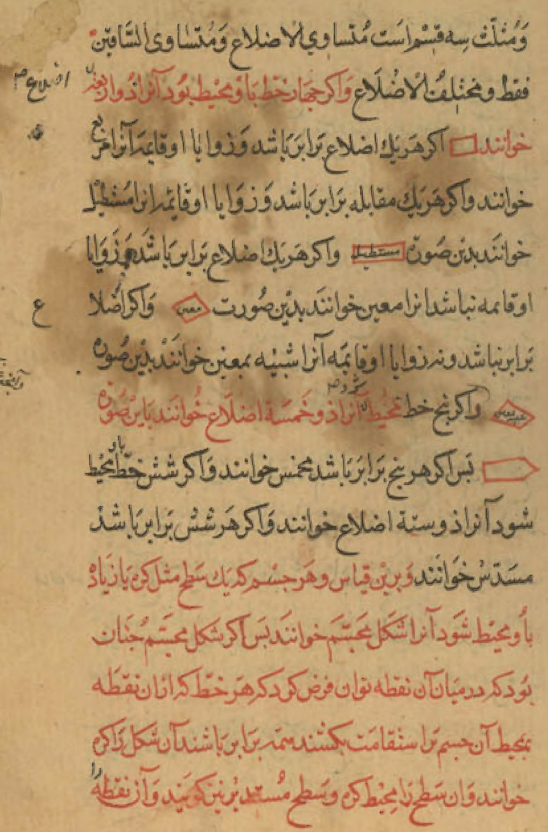 ومثلث سه قسم است متساوي الاضلاع ومتساوى الساقين
فقط ومختلف الاضلاع واكر چهار خط باو محيط بود آنرا ذو اربعة اضلاع
خوانند اكر هر يك اضلاع برابر باشد وزوايا او قايمه آنرا مربع
خوانند واكر هر يك مقابله برابر باشد وزوايا او قايمه انرا مستطيل
خوانند بدين صورة مستطيل واكر هر يك اضلاع برابر باشد وزوايا
او قايمه نباشد انرا معين خوانند بدين صورت معين واكر اضلاع
برابر نباشد ونه زوايا او قايمه آنرا شبيه بمعين خوانند بدين صوره
واكر پنج خط محيط شود آنرا ذو خمسة اضلاع خوانند باين صوره
پس اكر هر پنج برابر باشد مخمس خوانند واكر شش خط باو محيط
شود آنرا ذو ستة اضلاع خوانند واكر هر شش برابر باشد
مسدس خوانند وبرين قياس وهر جسم كه يك سطح مثل كره يا زياده
باو محيط شود آنرا شكل مجسم خوانند پس اكر شكل مجسم چنان
بود كه در ميان آن نقطه توان فرض كرد كه هر خط كه از ان نقطه
بمحيط آن جسم براستقامت بكشند همه برابر باشند آن شكل را كره
خوانند وان سطح را محيط كره وسطح مستدير نيز كويند وآن نقطه را